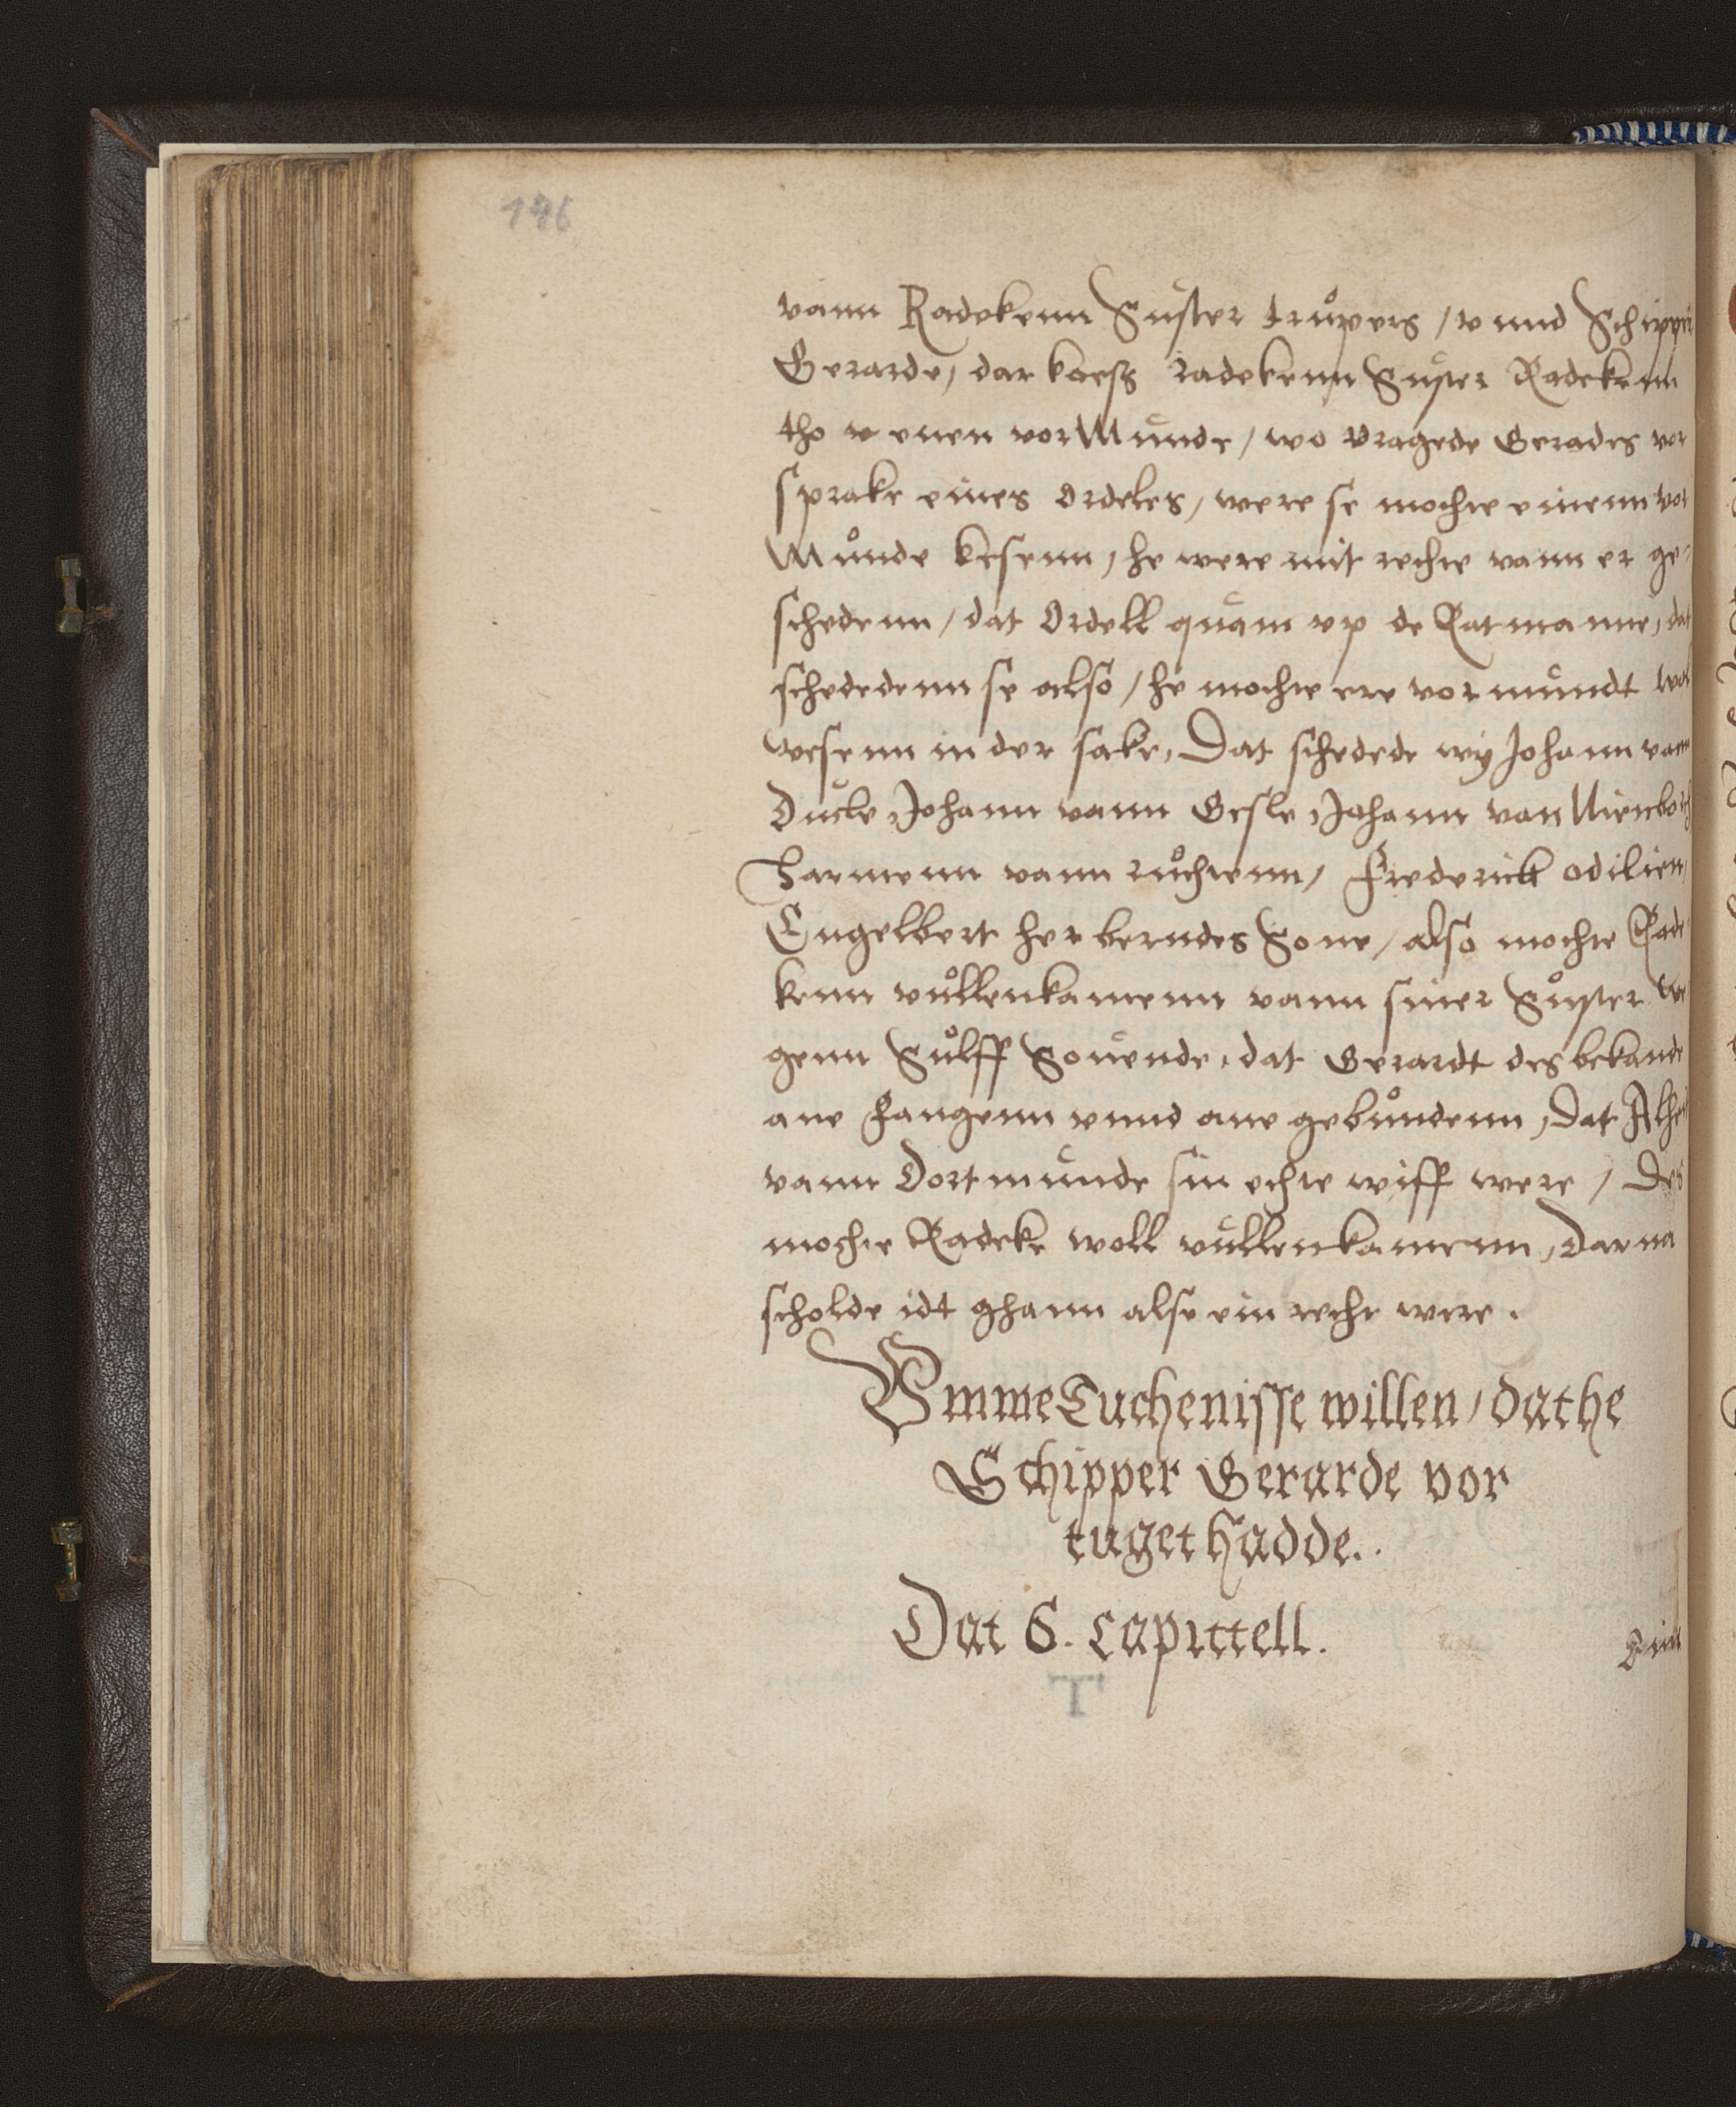 196
vann Radekenn Suster trupers / vnnd Schipper
Gerarde, dar koess radekenn Suster Radekenn
tho v enen vor Munde / wo vragede Gerades vor
sprake eines Ordeles, were se mochte einenn vor
Munde kesenn, he were mit rechte vann er ge-
schedenn / dat Ordell quam vp de Ratmanne, dat
schededenn se also / he mochte ere vormundt wol
wesenn in der sake, Dat schedede wy Johann vann
Ducle, Johann vann Gesle, Johann van Nienborg
Harmenn vann ruchtenn, Frederick odilien,
Engelbert her berndes Sone, also mochte Rade
kenn vullenkamenn vann siner Suster we
genn Sulff Souende, dat Gerardt des bekande
ane fangenn vnnd ane gebundenn, Dat Alhei
vann Dortmunde sin echte wiff were / Des
mochte Radeke woll vullenkamenn, Dar na
scholde idt ghann alse ein recht were.
Vmme Tuchenisse willen / dat he
Schipper Gerarde vor
tuget hadde..
Dat 6. capittell.